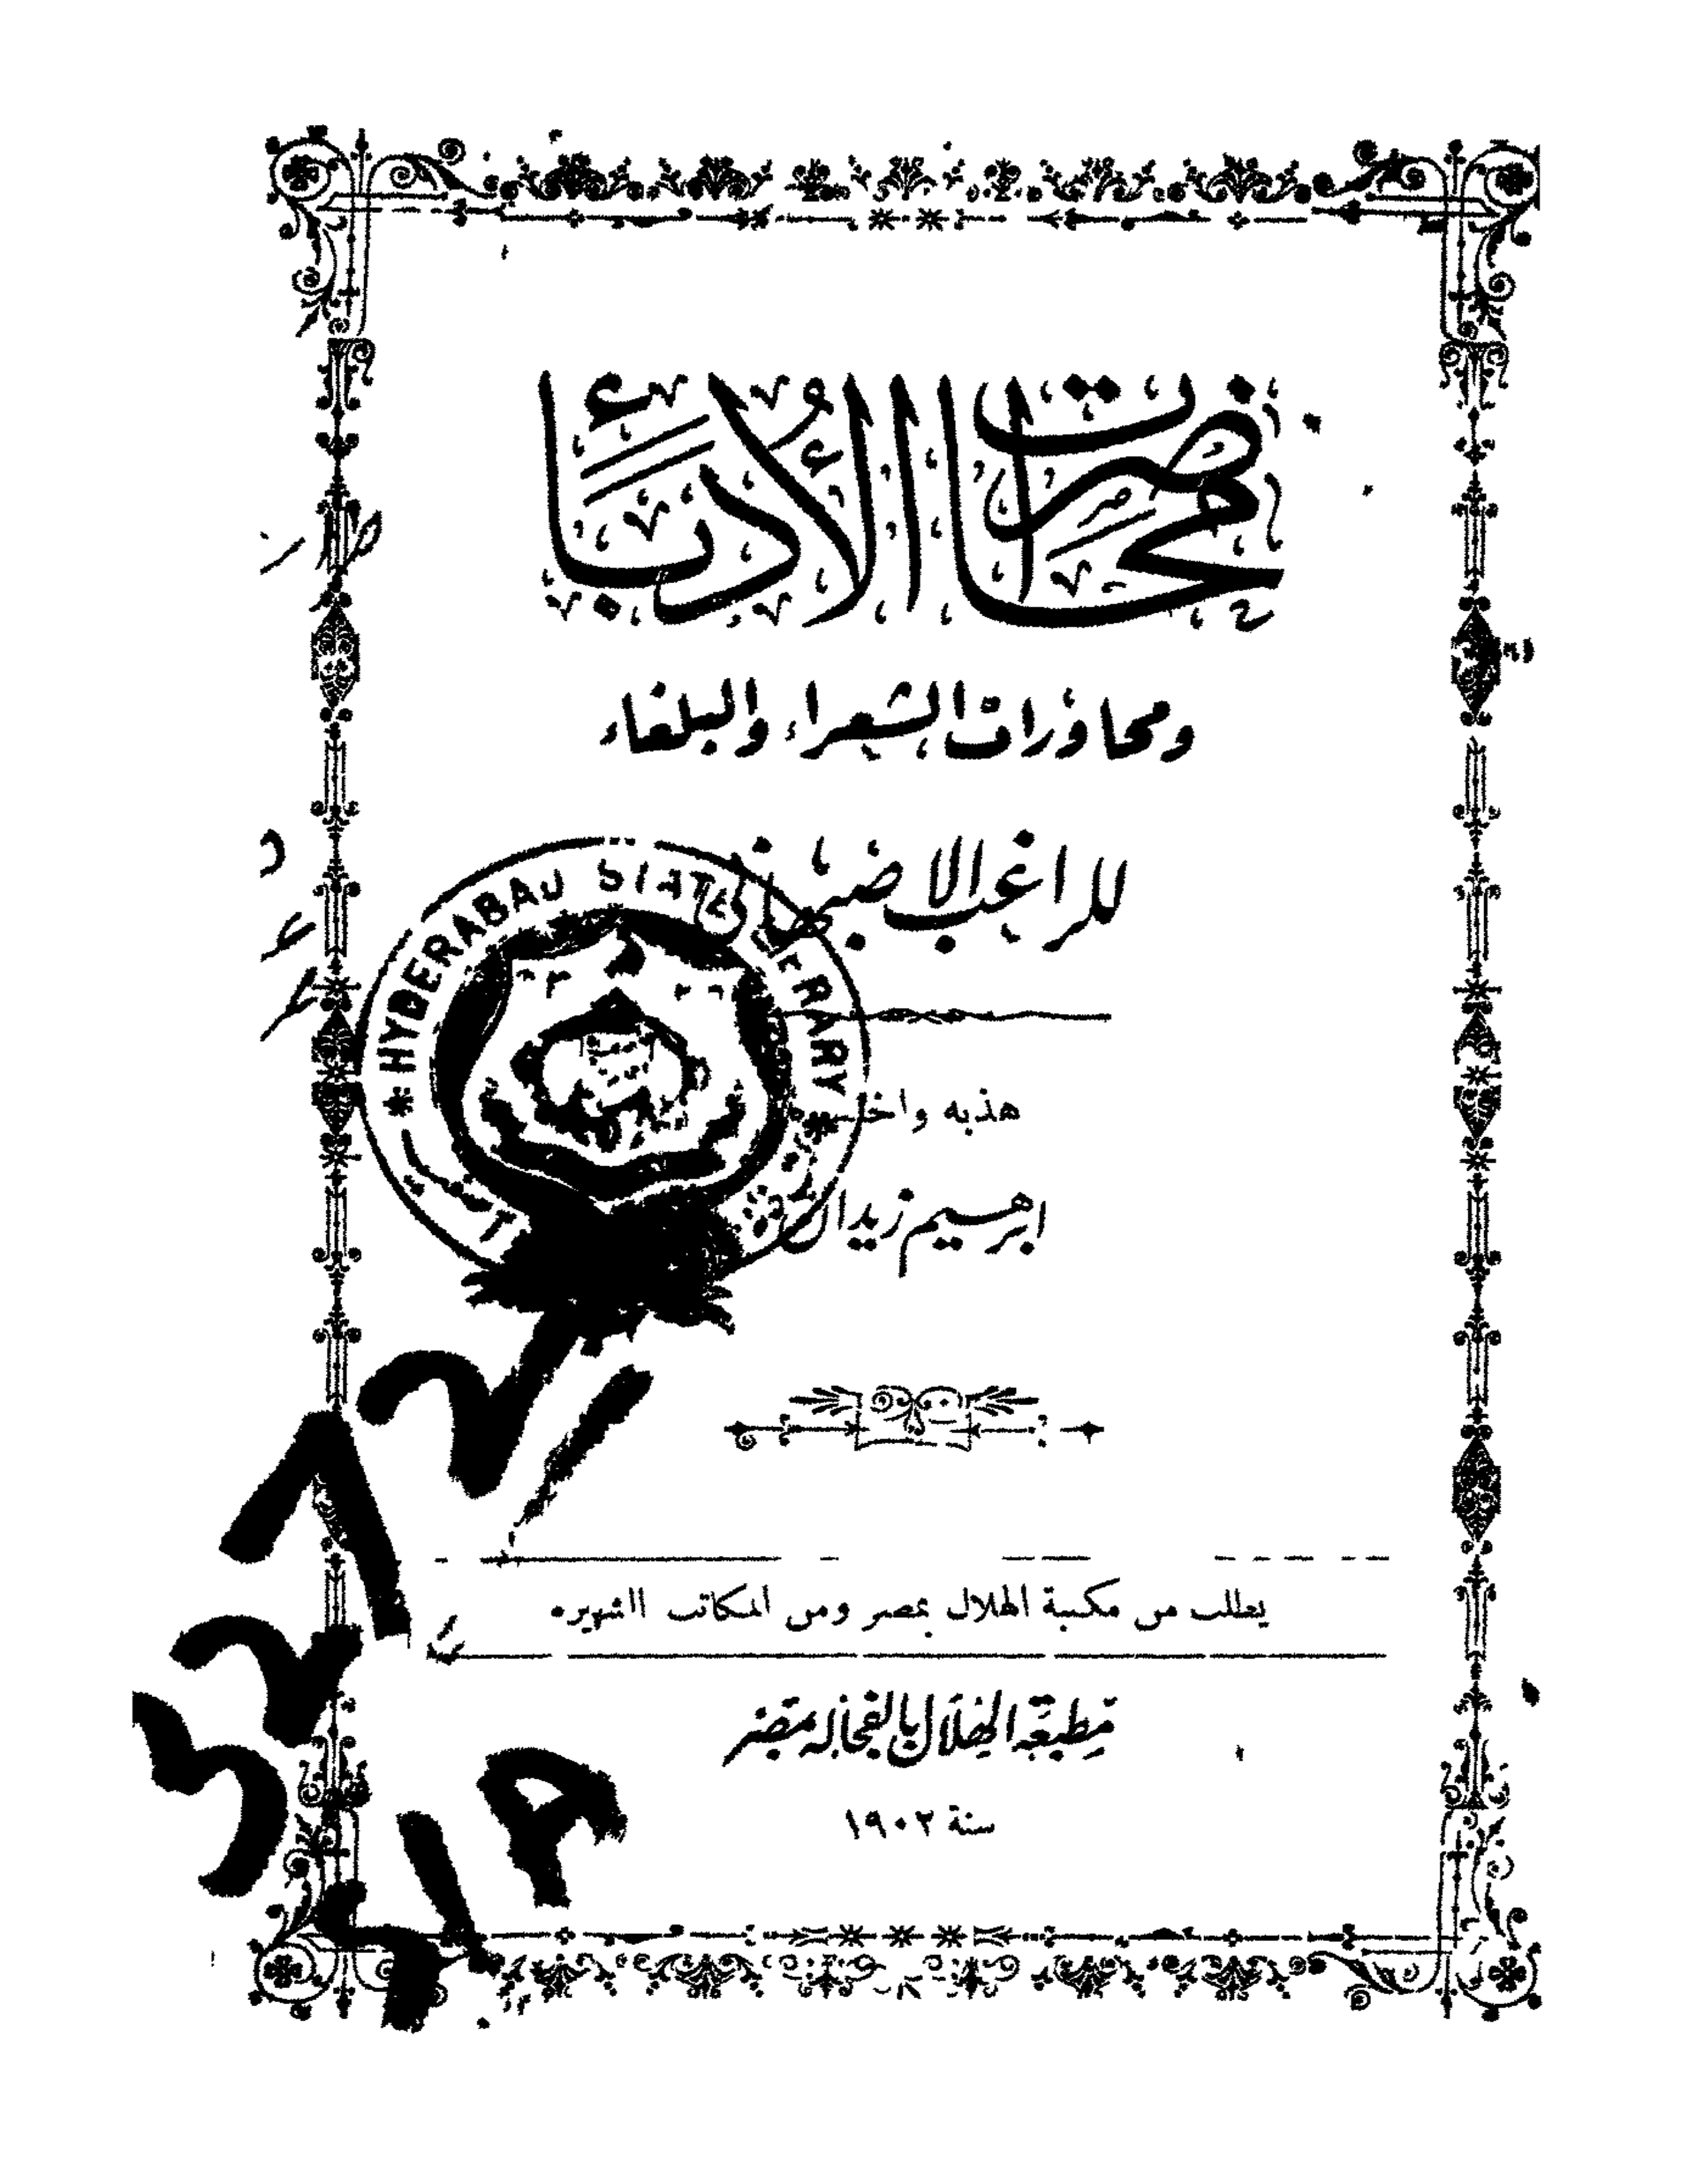 محاضرات الأدباء
ومحاورات الشعراء والبلغاء
للراغب الاصبهاني
HYDERABAD STATE LIBRARY
هذبه واختصره
ابرهيم زيدان
يطلب من مكتبة الهلال بمصر ومن المكاتب الشهيره
مطبعة الهلال بالفجالة بمصر
سنة ١٩٠٢